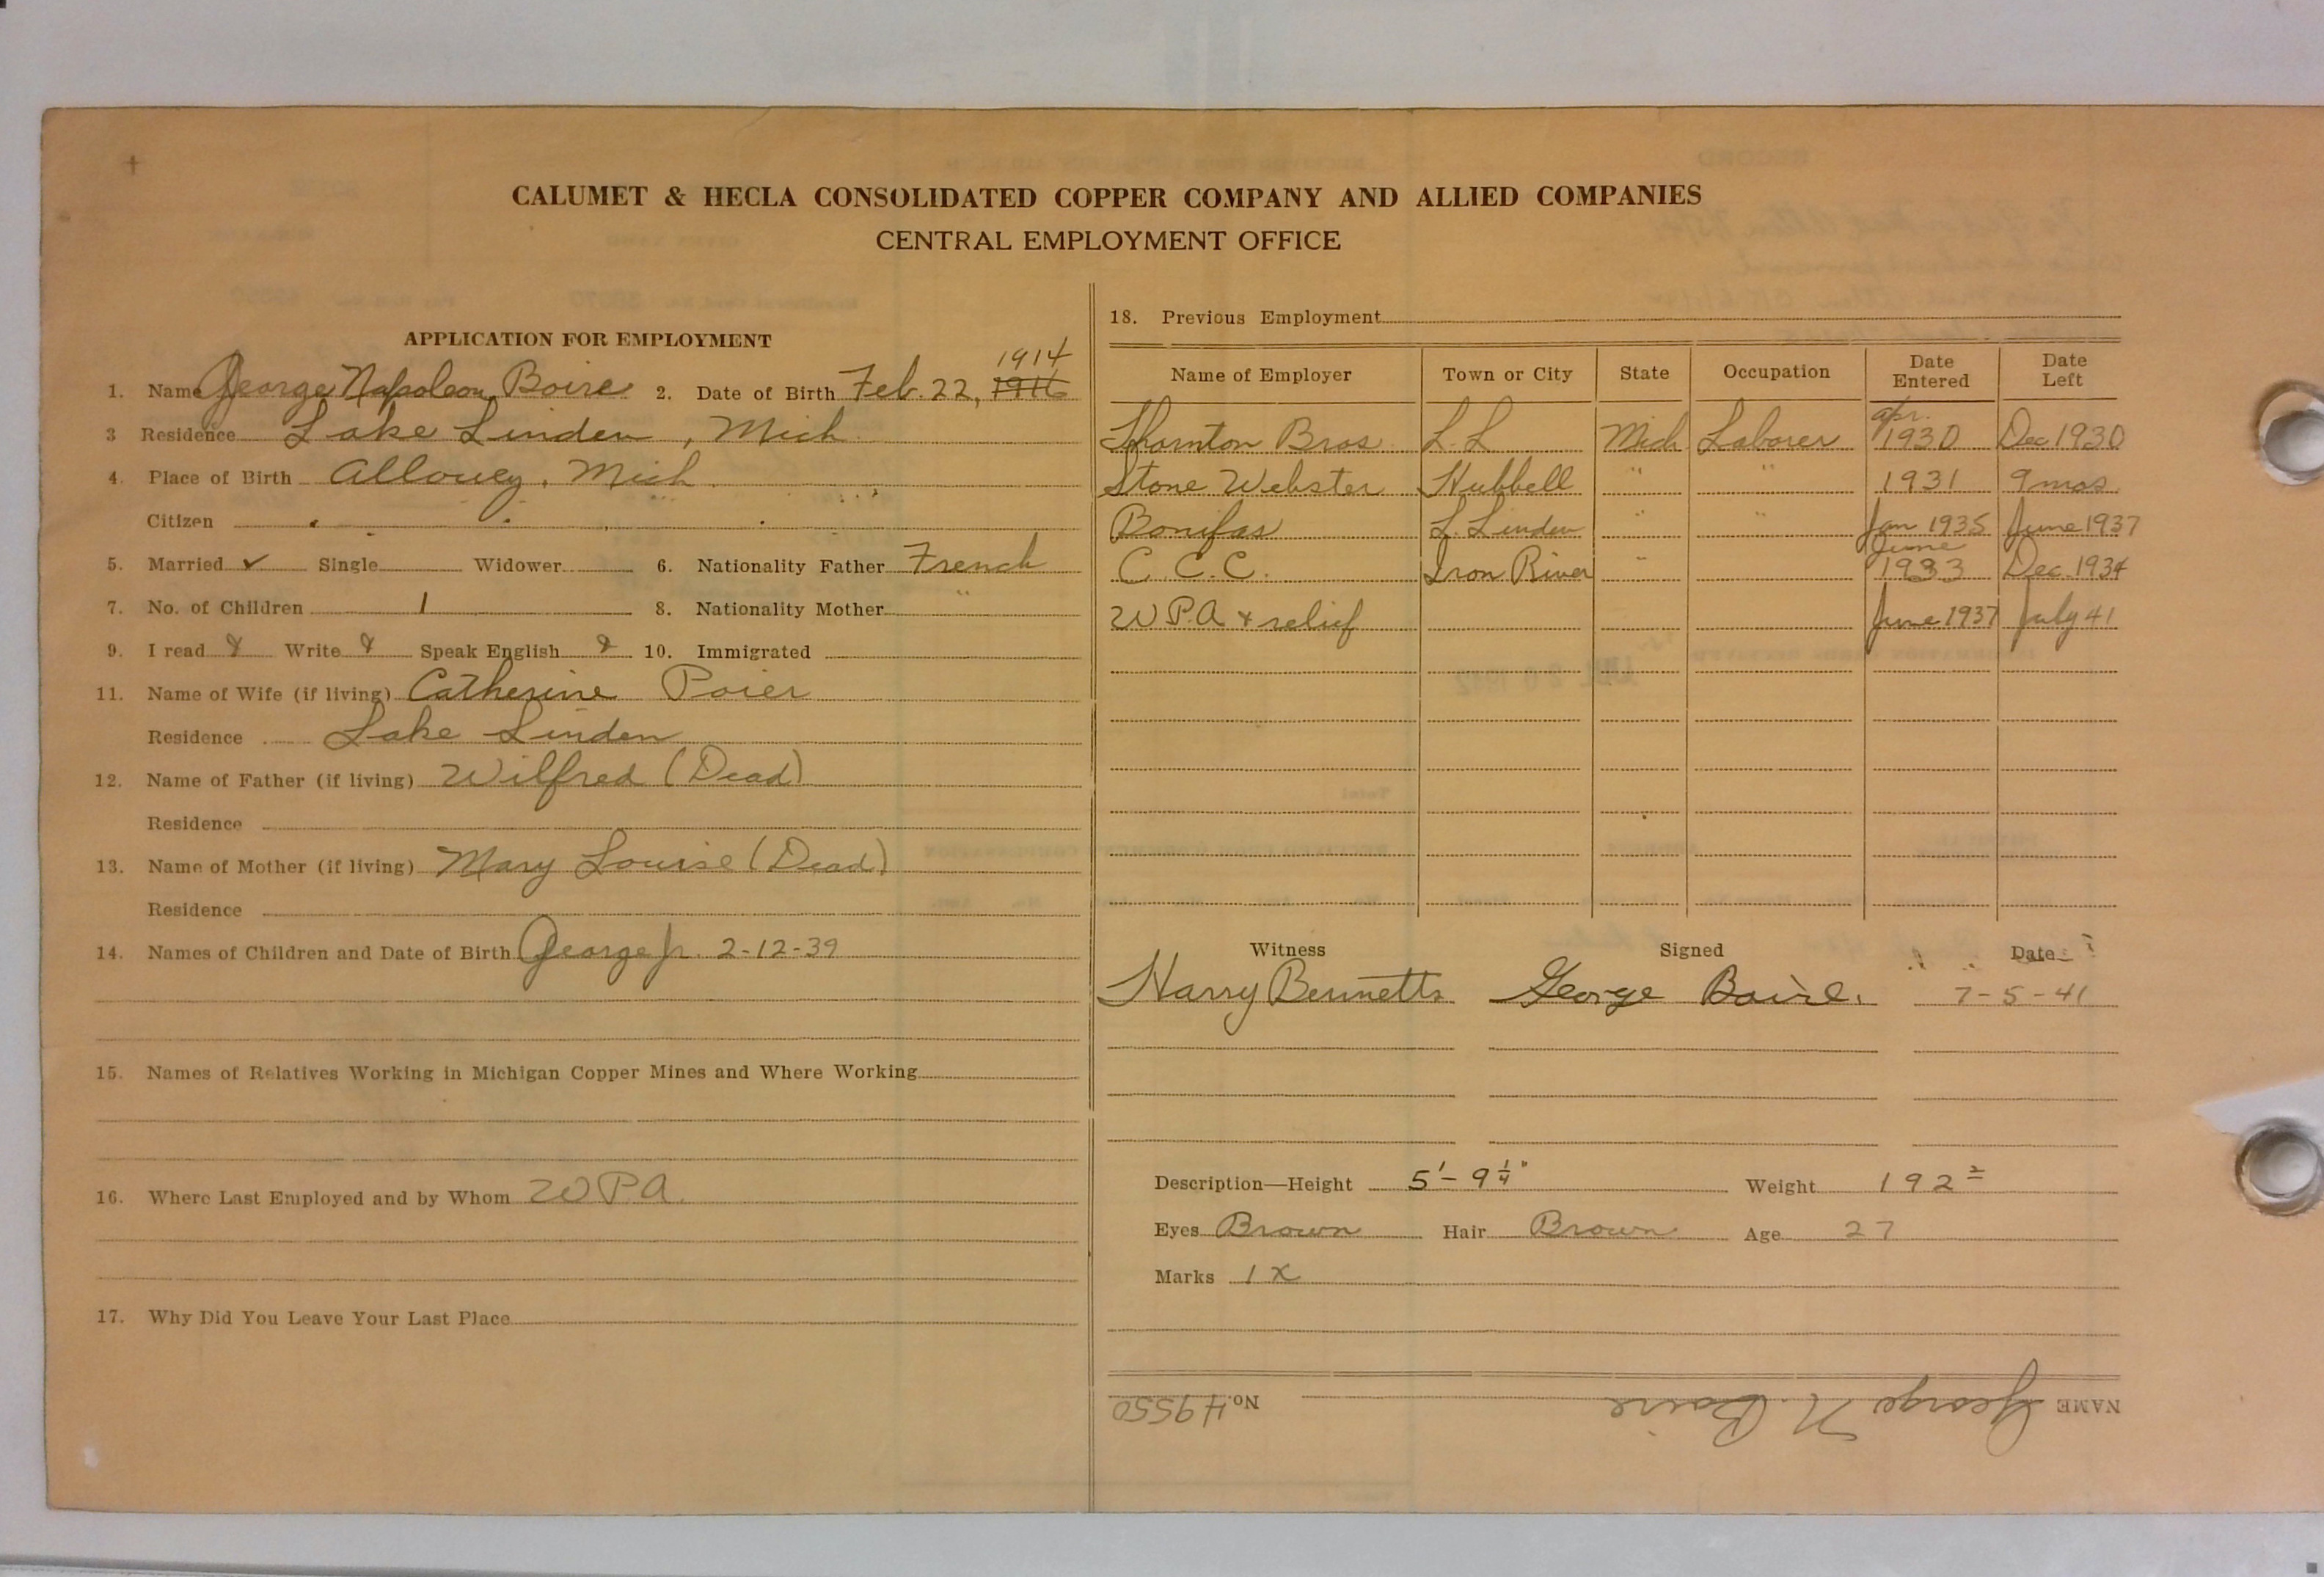 CALUMET & HECLA CONSOLIDATED COPPER COMPANY AND ALLIED COMPANIES
CENTRAL EMPLOYMENT OFFICE
APPLICATION FOR EMPLOYMENT
1. Name George Napoleon Boire 2. Date of Birth Feb. 22, 1916 1914
3 Residence Lake Linden, Mich
4. Place of Birth Allouey, Mich.
Citizen
5. Married ✓ Single Widower 6. Nationality Father French
7. No. of Children 1 8. Nationality Mother "
9. I read Write Speak English 10. Immigrated
11. Name of Wife (if living) Catherine Poier
Residence Lake Linden
12. Name of Father (if living) Wilfred (Dead)
Residence
13. Name of Mother (if living) Mary Louise (Dead)
Residence
14. Names of Children and Date of Birth George Jr. 2-12-39
15. Names of Relatives Working in Michigan Copper Mines and Where Working
16. Where Last Employed and by Whom WPA.
17. Why Did You Leave Your Last Place
18. Previous Employment
Name of Employer Town or City State Occupation Date Entered Date Left
Thornton Bros L.L Mich Laborer Apr. 1930 Dec 1930
Stone Webster Hubbell " " 1931 9 mos.
Bonifas L. Linden " " Jan 1935 June 1937
C.C.C. Iron River " June 1933 Dec. 1934
W P.A & relief June 1937 July 41
Witness Signed Date
Harry Bennetts George Boire. 7-5-41
Description—Height 5'-9 1/4" Weight 192 2
Eyes Brown Hair Brown Age 27
Marks 1 x
NAME George N. Boire No. 49550